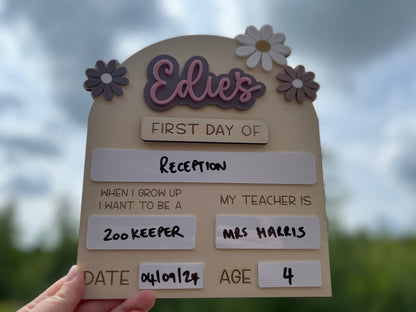 Edie's
FIRST DAY OF
RECEPTION
WHEN I GROW UP
I WANT TO BE A
ZOOKEEPER
MY TEACHER IS
MRS HARRIS
DATE 04/09/24 AGE 4